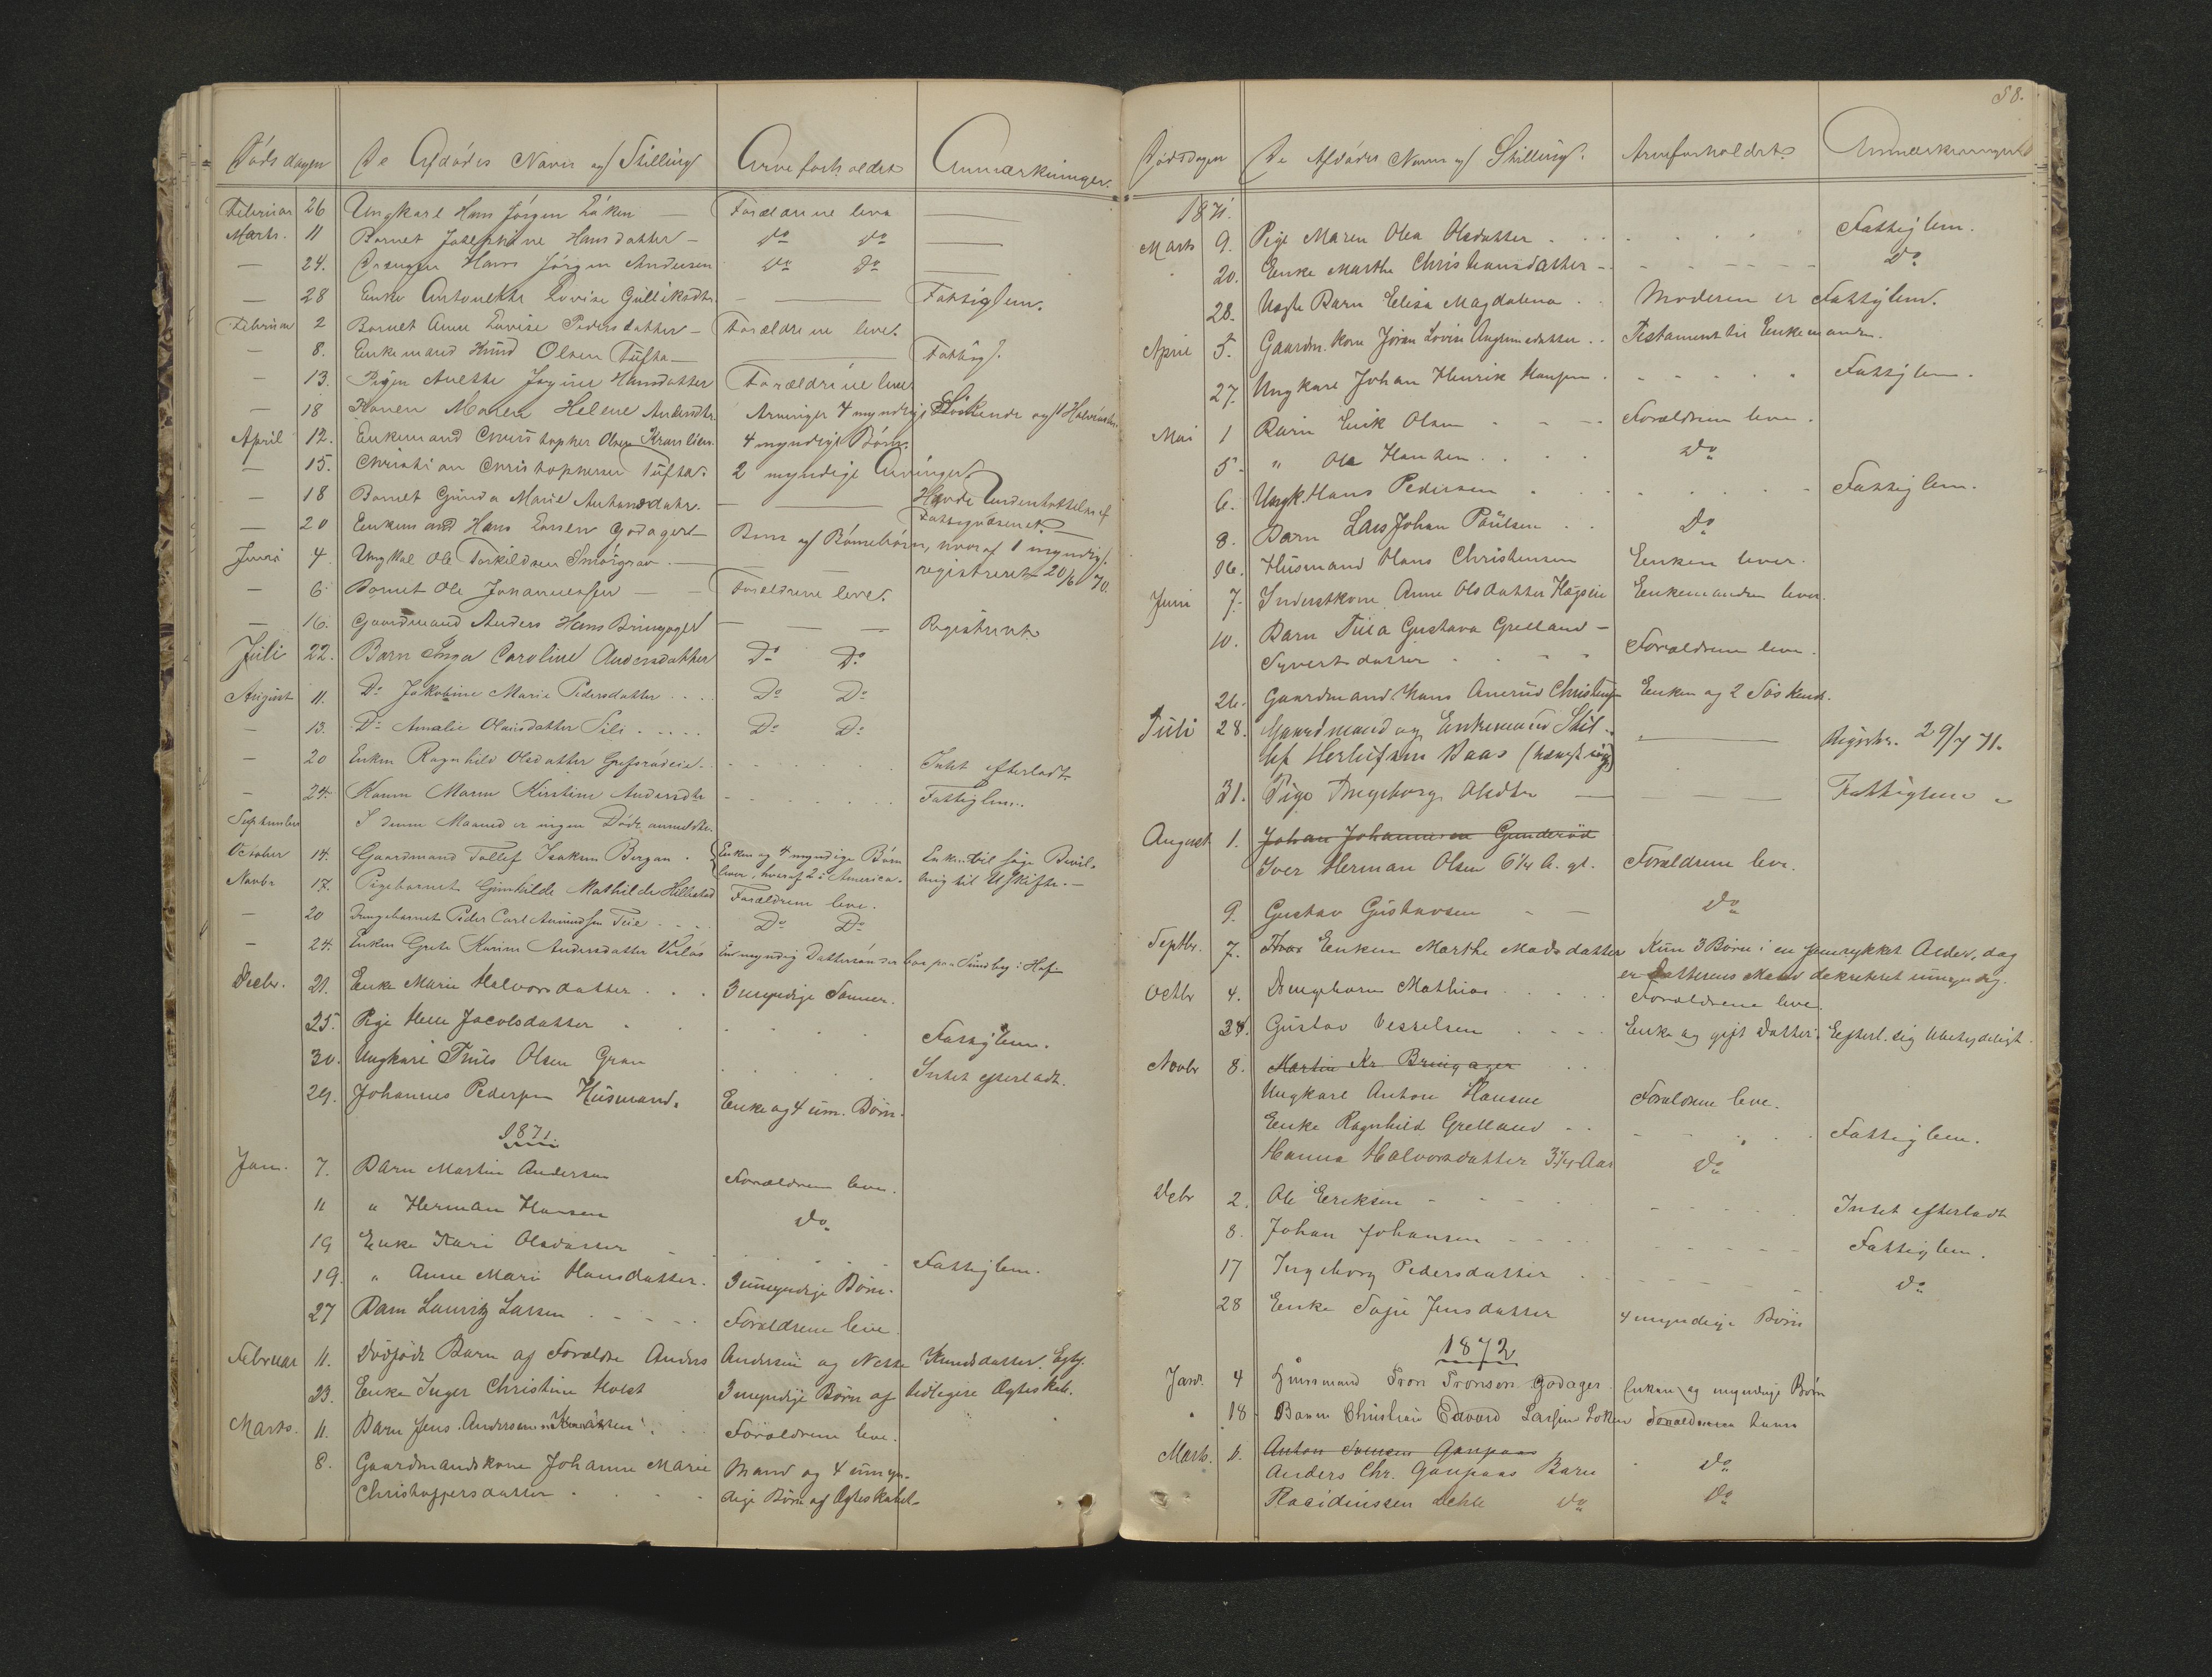 Dødsdagen De Afdødes Navn og Stilling Arveforholdet Anmærkninger.
Februar 26 Ungkarl Hans Jørgen Løken — Forældrene leve —
Marts. 11 Barnet Josephine Hansdatter — Do Do —
— 24. Drengen Hans Jørgen Andersen Do Do —
— 28 Enke Antonette Lovise Gulliksdtr. — — Fattiglem.
Februar 2 Barnet Anne Lovise Pedersdatter — Forældrene leve.
— 8. Enkemand Knud Olsen Tufte — — Fattig.
— 13. Pigen Anette Hansdatter Forældrene leve
— 18 Konen Maren Helene Arvinger 4 myndige Søskende og 1 Halvsøster
April 12. Enkemand Christopher Olsen 4 myndige Børn.
— 15. Christian Christophersen Tufte. 2 myndige Arvinger.
— 18 Barnet Gunda Marie — Havde Understøttelse af
Fattigvæsenet.
— 20 Enkemand Hans Larsen Godager — Børn og Børnebørn, hvoraf 1 myndig.
registreret 20/6 70.
Juni 4. Ungkal Ole Torkildsen Smørgrav. —
— 6. Barnet Ole Johannessen — Forældrene leve.
— 16. Gaardmand Anders Hans Bringager — — — Registreret
Juli 22. Barn Inga Caroline Andersdatter Do Do
August 11. Do Jakobine Marie Pedersdatter .... Do Do
— 13. Do Amalie Olausdatter Sili ..... Do Do
— 20 Enken Ragnhild Olsdatter ..... Intet efterladt.
— 24. Konen Maren Kirstine Andersdtr ..... Fattiglem.
September I denne Maaned er ingen Døde anmeldte.
October 14. Gaardmand Tollef Isaksen Bergan. Enken og 4 myndige Børn Enken vil søge Bevil-
lever, hvoraf 2 i America. ling til Uskifte. —
Novbr 17. Pigebarnet Gunhilde Mathilde Hillestad Forældrene leve.
— 20 Drengebarnet Peder Carl Amundsen Teie .... Do Do
— 24. Enken Grete Karine Andersdatter En myndig Dattersøn der bor paa Sundby i Hof.
Decbr. 21. Enke Marie Halvorsdatter ... 3 myndige Sønner.
25. Pige Helle Jacobsdatter ..... Fattiglem.
30. Ungkarl Truls Olsen Gran ..... Intet efterladt.
29. Johannes Pedersen Husmand. Enke og 4 um. Børn.
1871.
Jan. 7. Barn Martin Andersen Forældrene leve.
11 " Herman Hansen Do
19 Enke Kari Olsdatter ..... Fattiglem.
19. " Anne Marie Hansdatter. 3 umyndige Børn.
27 Barn Lauritz Larsen ..... Forældrene leve.
Februar 11. Dødfødt Barn af Forældre Anders Andersen og Nette Knudsdatter. Egtf.
23. Enke Inger Christine Holst 3 myndige Børn af tidligere Ægteskab.
Marts. 11. Barn Jens Andersen Forældrene leve.
8. Gaardmandskone Johanne Marie Mand og 4 umyn-
Christophersdatter .... dige Børn af Ægteskabet.
58.
Dødsdagen De Afdødes Navn og Stilling. Arveforholdet. Anmærkninger
1871.
Marts 9. Pige Maren Olea Olsdatter ..... Fattiglem.
20. Enke Marthe Christiansdatter ..... Do
28. Uægte Barn Elisa Magdalena .. Moderen er Fattiglem.
April 5. Gaardm. kone Jøran Lovise .. Testament til Enkemanden.
27. Ungkarl Johan Henrik Hansen ..... Fattiglem.
Mai 1 Barn Erik Olsen ... Forældrene leve.
5. " Ole Hansen .... Do
6. Ungk. Hans Pedersen ..... Fattiglem.
8. Barn Lars Johan Paulsen .. Do
16. Husmand Hans Christensen Enken lever.
Juni 7. Inderstkone Anne Olsdatter Enkemanden lever.
10. Barn Tilla Gustava Grelland —
Syvertsdatter .... Forældrene leve.
26. Gaardmand Hans Anerud Christensen Enken og 2 Søskende.
Juli 28. Gaardmand og Enkemand Skil- — Registr. 29/7 71.
lef Herlufsen Baas (hængt sig)
31. Pige Ingeborg Olsdtr — — Fattiglem
August 1. Johan Johannesen Gunderød
Iver Herman Olsen 6 1/4 A. gl. Forældrene leve.
9. Gustav Gustavsen — Do
Septbr. 7. Enken Marthe Madsdatter Kun 3 Børn i en fremrykket Alder, dog
er Datterens Mand dekreteret umyndig.
Octbr 4. Drengebarn Mathias .... Forældrene leve.
34. Gustav Vesselsen .... Enke og gift Datter. Efterl. sig Ubetydeligt.
Novbr 8. Martin Kr. Bringager ...
Ungkarl Anton Hansen Forældrene leve.
Enke Ragnhild Grelland ..... Fattiglem.
Hanna Halvorsdatter 3 3/4 Aar Do
Decbr 2. Ole Eriksen ..... Intet efterladt
8. Johan Johansen ..... Fattiglem.
17 Ingeborg Pedersdatter ..... Do
28 Enke Jensdatter 4 myndige Børn
1872
Janr. 4 Huusmand Tron Tronsen Godager. Enken og myndige Børn
" 18 Barn Christian Edvard Larsen Løken Forældrene leve
Marts. 6. Anton Svensen Gaupaas
Anders Chr. Gaupaas Barn Do
Dehle Do Do